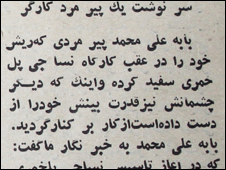 سر نوشت یك پیر مرد کارگر
بابه علی محمد پیر مردی که‌ریش
خود را در عقب کارگاه نسا جی پل
خمری سفید کرده واینك که دیگر
چشمانش نیزقدرت بینش خودرا از
دست داده‌است‌ازکار بر کنارگردید.
بابه علی محمد به خبر نگار ماگفت:
که در اغاز تاسیس نساجی پلخمری